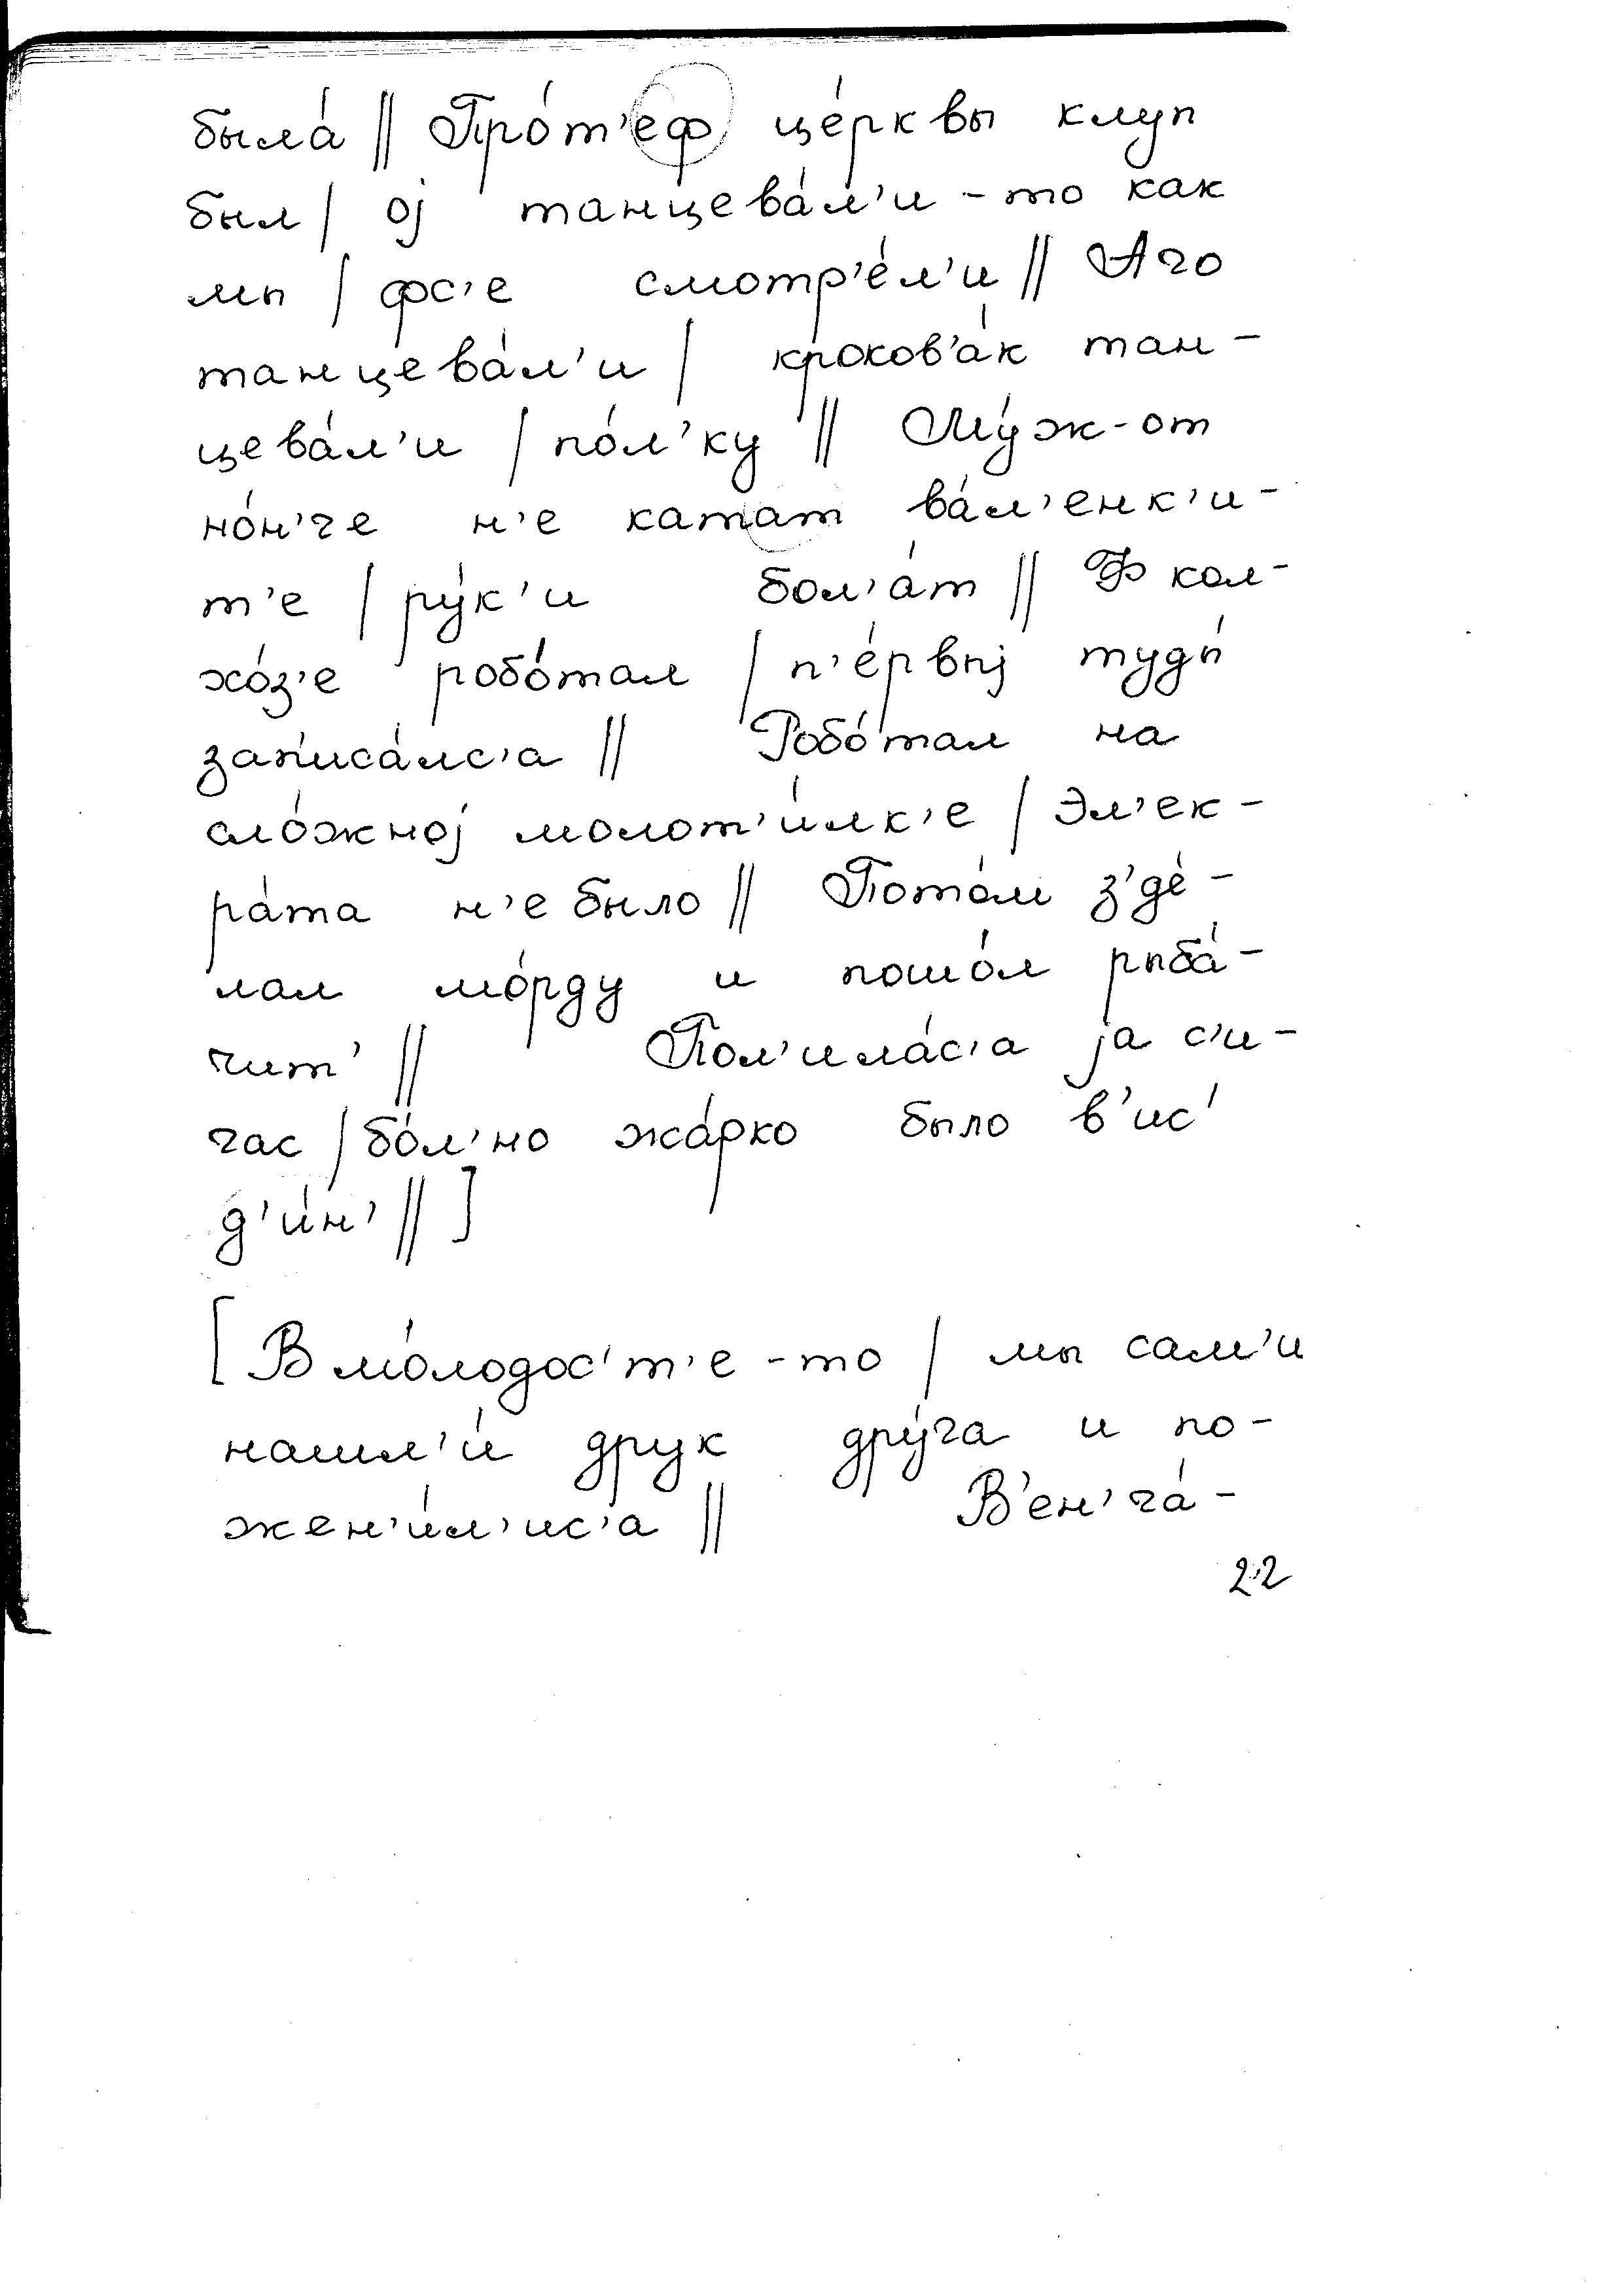 была́ || Про́т'еф це́рквы клуп
был | ој танцева́л'и - то как
мы | фс'е смотр'е́л'и || А чо
танцева́л'и | краков'а́к тан-
цева́л'и | по́л'ку || Му́ж-от
но́н'че н'е катат ва́л'енк'и-
т'е | ру́к'и бол'а́т || Ф кол-
хо́з'е робо́тал | п'е́рвыј туды́
записа́лс'а || Робо́тал на
сло́жној молот'и́лк'е | Эл'ек-
ра́та н'е было || Пото́м з'де́-
лал мо́рду и пошо́л рыба́-
чит' || Пол'ила́с'а ја с'и-
час | бо́л'но жа́рко было в'ис'
д'и́н' || ]
[ В мо́лодос'т'е - то | мы сам'и
нашл'и́ друк дру́га и по-
жен'и́л'ис'а || В'ен'ча́-
22